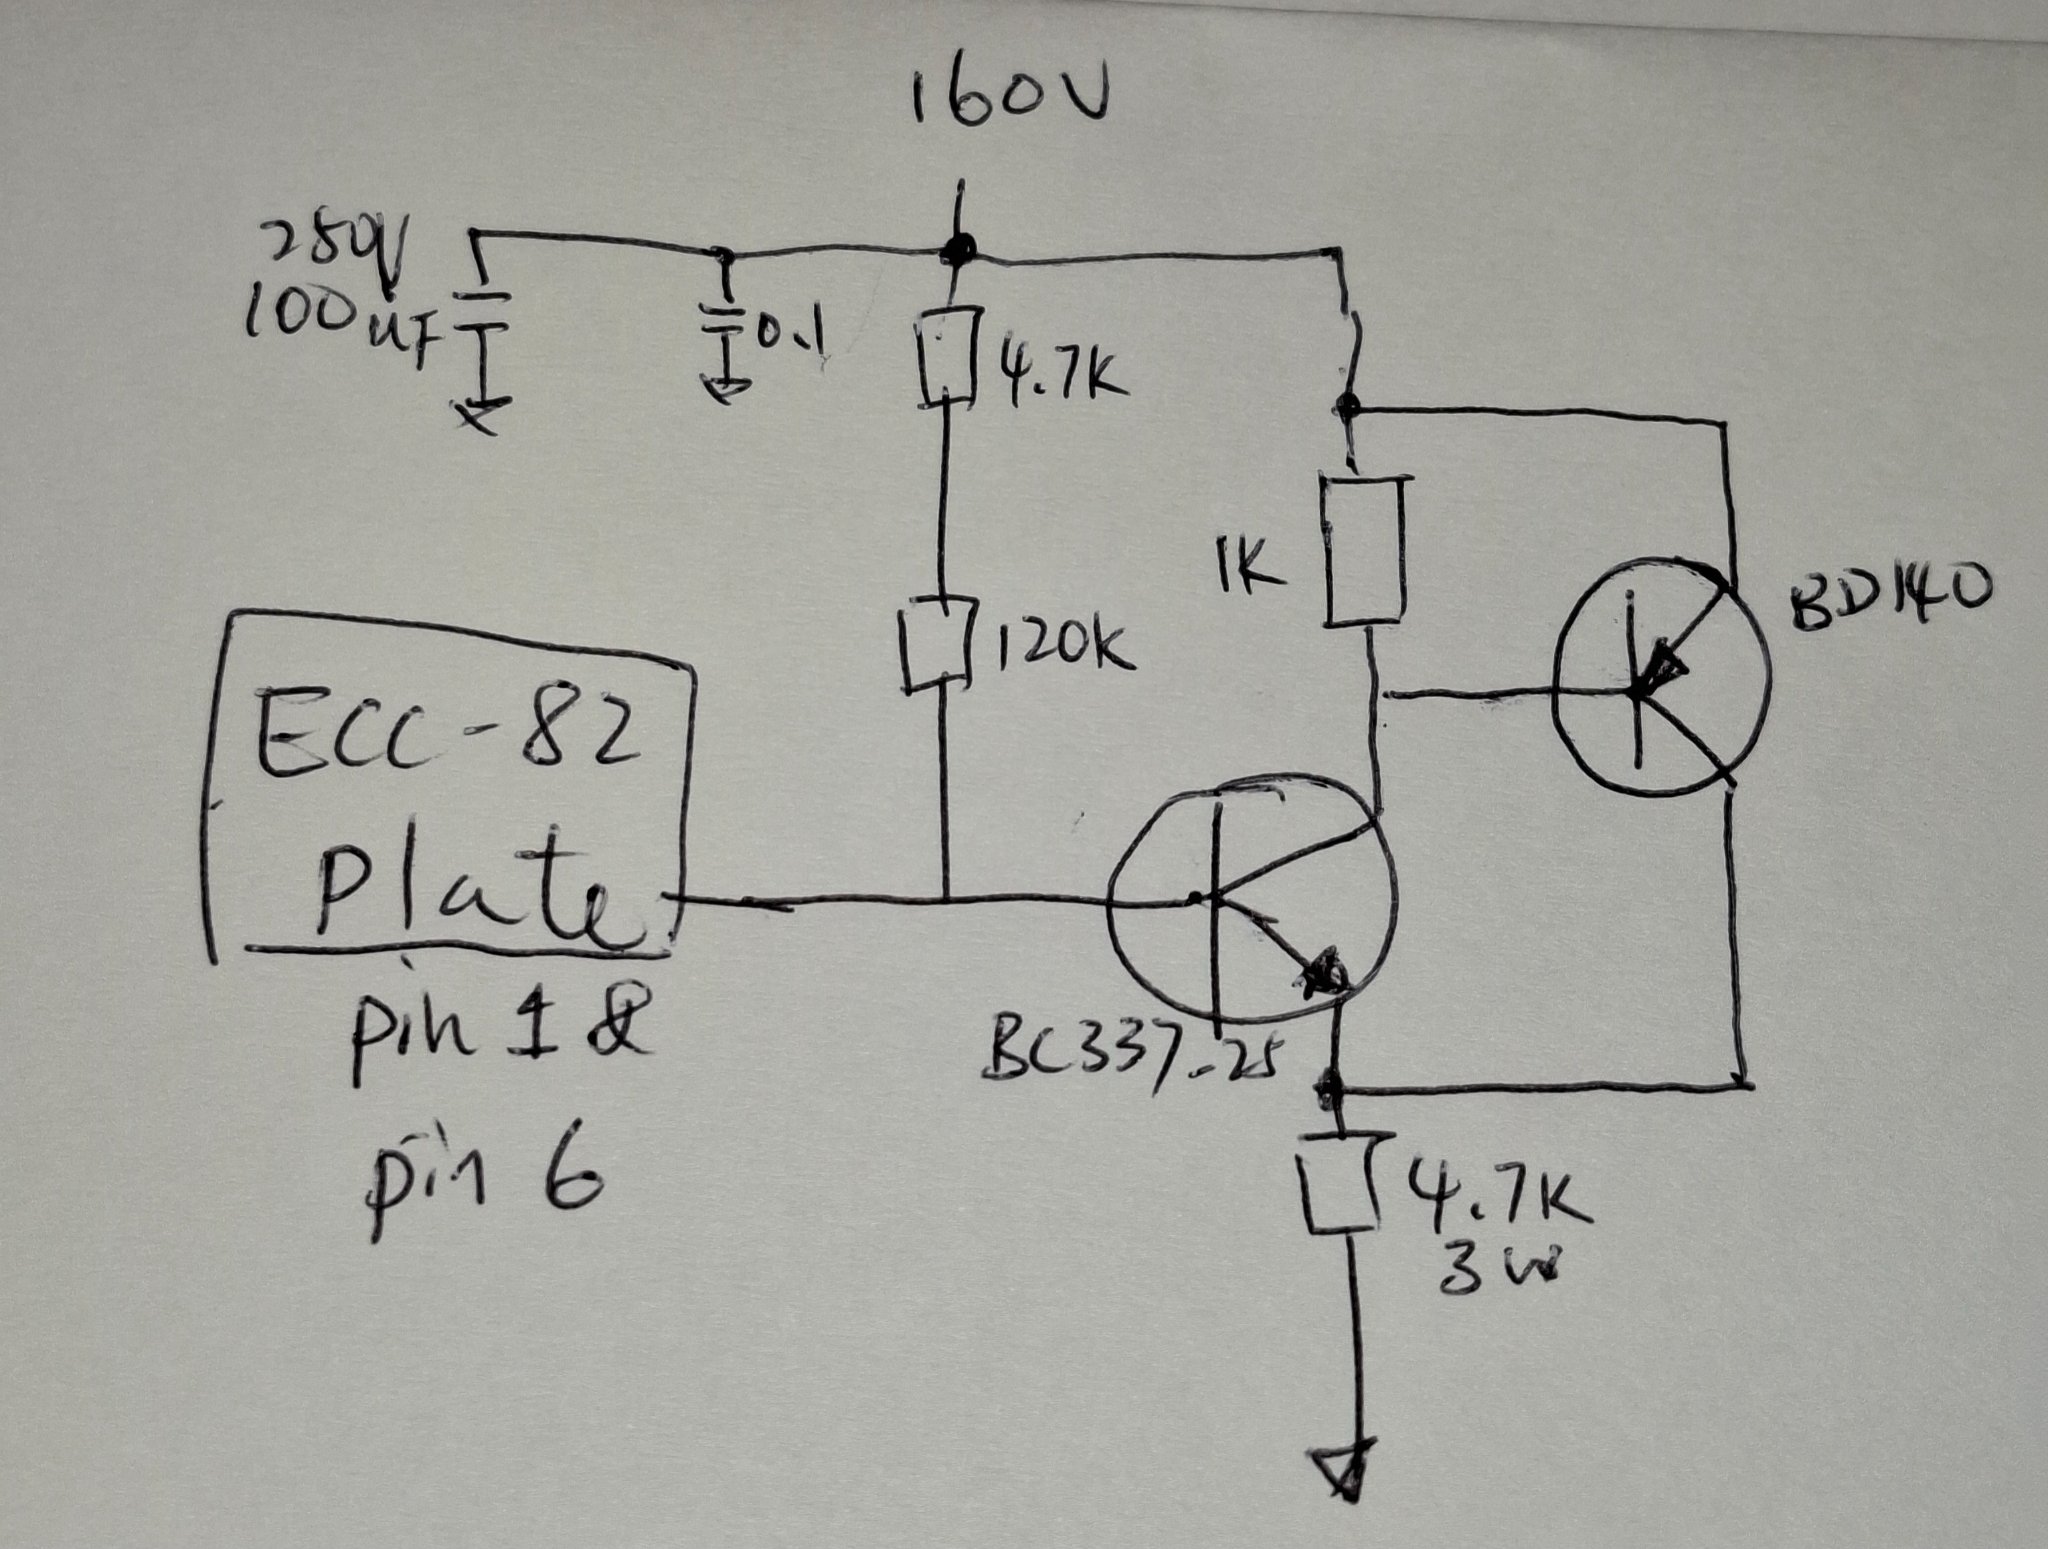 160V
250V
100uF
0.1
4.7K
1K
BD140
120K
ECC-82
Plate
pin 1 &
pin 6
BC337-25
4.7K
3W